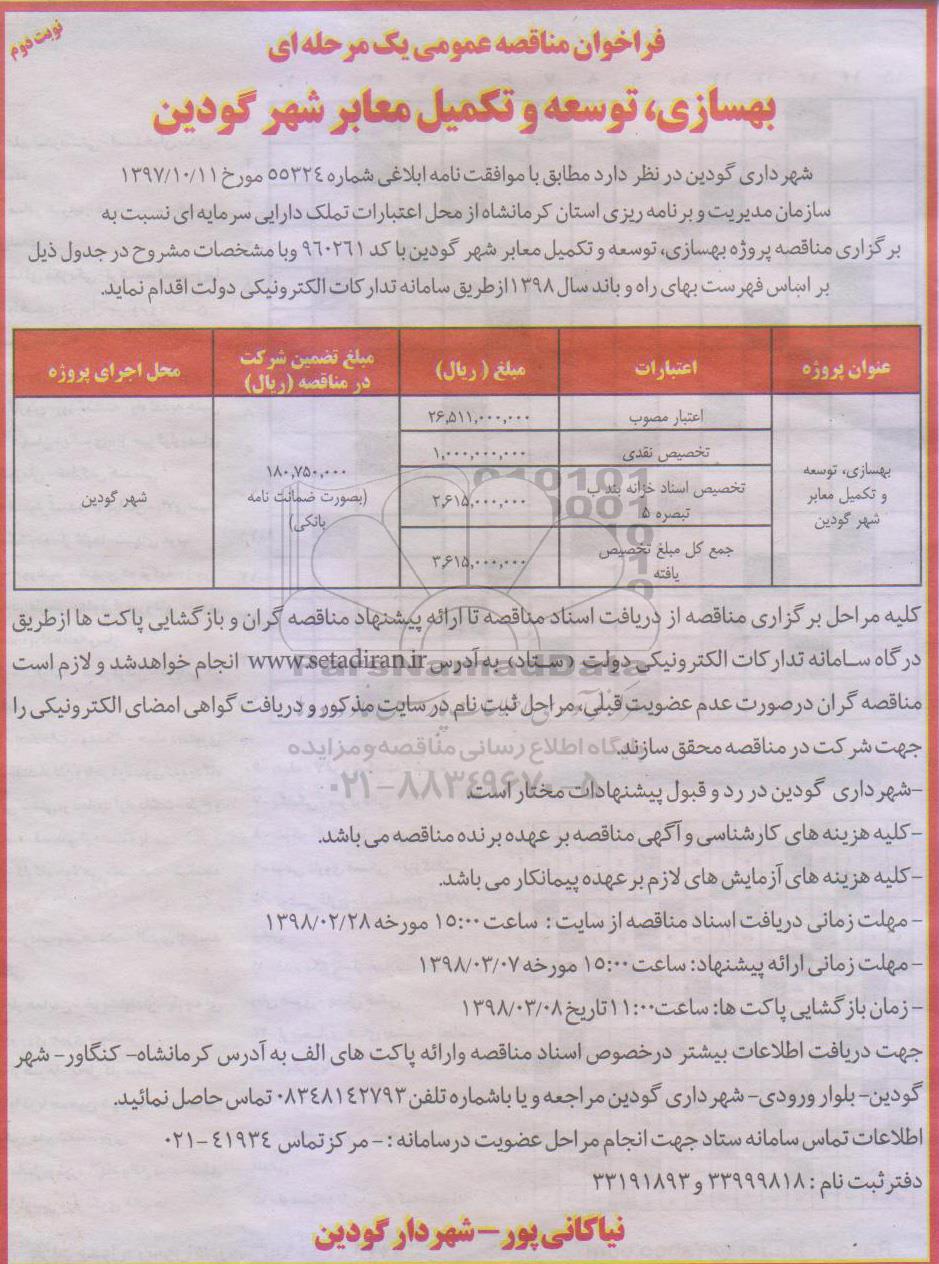 نوبت دوم
فراخوان مناقصه عمومی یک مرحله ای
بهسازی، توسعه و تکمیل معابر شهر گودین
شهرداری گودین در نظر دارد مطابق با موافقت نامه ابلاغی شماره ۵۵۳۲۴ مورخ ۱۳۹۷/۱۰/۱۱
سازمان مدیریت و برنامه ریزی استان کرمانشاه از محل اعتبارات تملک دارایی سرمایه ای نسبت به
برگزاری مناقصه پروژه بهسازی، توسعه و تکمیل معابر شهر گودین با کد ۹۶۰۲۶۱ وبا مشخصات مشروح در جدول ذیل
بر اساس فهرست بهای راه و باند سال ۱۳۹۸ ازطریق سامانه تدارکات الکترونیکی دولت اقدام نماید.
عنوان پروژه اعتبارات مبلغ ( ریال) مبلغ تضمین شرکت در مناقصه (ریال) محل اجرای پروژه
بهسازی، توسعه
و تکمیل معابر
شهر گودین
اعتبار مصوب ۲۶,۵۱۱,۰۰۰,۰۰۰
تخصیص نقدی ۱,۰۰۰,۰۰۰,۰۰۰
تخصیص اسناد خزانه بند ب
تبصره ۵ ۲,۶۱۵,۰۰۰,۰۰۰
جمع کل مبلغ تخصیص
یافته ۳,۶۱۵,۰۰۰,۰۰۰
۱۸۰,۷۵۰,۰۰۰
(بصورت ضمانت نامه
بانکی)
شهر گودین
کلیه مراحل برگزاری مناقصه از دریافت اسناد مناقصه تا ارائه پیشنهاد مناقصه گران و بازگشایی پاکت ها ازطریق
درگاه سامانه تدارکات الکترونیکی دولت (ستاد) به آدرس www.setadiran.ir انجام خواهدشد و لازم است
مناقصه گران درصورت عدم عضویت قبلی، مراحل ثبت نام در سایت مذکور و دریافت گواهی امضای الکترونیکی را
جهت شرکت در مناقصه محقق سازند.
-شهرداری گودین در رد و قبول پیشنهادات مختار است.
-کلیه هزینه های کارشناسی و آگهی مناقصه بر عهده برنده مناقصه می باشد.
-کلیه هزینه های آزمایش های لازم بر عهده پیمانکار می باشد.
- مهلت زمانی دریافت اسناد مناقصه از سایت : ساعت ۱۵:۰۰ مورخه ۱۳۹۸/۰۲/۲۸
- مهلت زمانی ارائه پیشنهاد: ساعت ۱۵:۰۰ مورخه ۱۳۹۸/۰۳/۰۷
- زمان بازگشایی پاکت ها: ساعت ۱۱:۰۰ تاریخ ۱۳۹۸/۰۳/۰۸
جهت دریافت اطلاعات بیشتر درخصوص اسناد مناقصه وارائه پاکت های الف به آدرس کرمانشاه- کنگاور- شهر
گودین- بلوار ورودی- شهرداری گودین مراجعه و یا باشماره تلفن ۰۸۳۴۸۱۴۲۷۹۳ تماس حاصل نمائید.
اطلاعات تماس سامانه ستاد جهت انجام مراحل عضویت درسامانه : - مرکز تماس ۴۱۹۳۴ -۰۲۱
دفتر ثبت نام : ۳۳۹۹۹۸۱۸ و ۳۳۱۹۱۸۹۳
نیاکانی پور - شهردار گودین
ParsNamadData
پایگاه اطلاع رسانی مناقصه و مزایده
۰۲۱-۸۸۳۴۹۶۷۰-۵